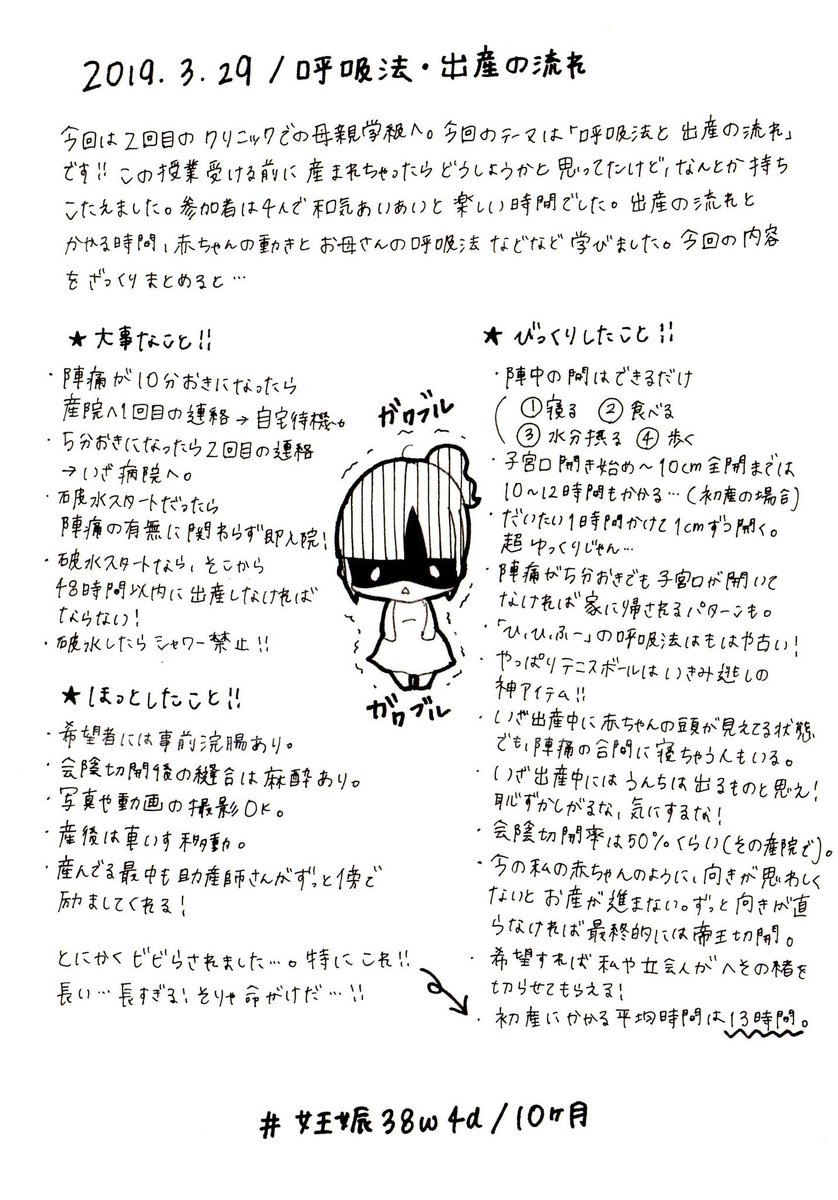 2019.3.29/呼吸法・出産の流れ
今回は2回目のクリニックでの母親学級へ。今回のテーマは「呼吸法と出産の流れ」
です!! この授業受ける前に産まれちゃったらどうしようかと思ってたけど、なんとか持ち
こたえました。参加者は4人で和気あいあいと楽しい時間でした。出産の流れと
かかる時間、赤ちゃんの動きとお母さんの呼吸法などなど学びました。今回の内容
をざっくりまとめると…
★大事なこと!!
・陣痛が10分おきになったら
産院へ1回目の連絡→自宅待機。
・5分おきになったら2回目の連絡
→いざ病院へ。
・破水スタートだったら
陣痛の有無に関わらず即入院!
・破水スタートなら、そこから
48時間以内に出産しなければ
ならない!
・破水したらシャワー禁止!!
★ほっとしたこと!!
・希望者には事前浣腸あり。
・会陰切開後の縫合は麻酔あり。
・写真や動画の撮影OK。
・産後は車いす移動。
・産んでる最中も助産師さんがずっと傍で
励ましてくれる!
とにかくビビらされました…。特にこれ!!
長い…長すぎる!そりゃ命がけだ…!!
ガクブル
ガクブル
★びっくりしたこと!!
・陣中の間はできるだけ
①寝る ②食べる
③水分摂る ④歩く
・子宮口開き始め〜10cm全開までは
10〜12時間もかかる…(初産の場合)
・だいたい1時間かけて1cmずつ開く。
超ゆっくりじゃん…
・陣痛が5分おきでも子宮口が開いて
なければ家に帰されるパターンも。
・「ひ,ひ,ふー」の呼吸法はもはや古い!
・やっぱりテニスボールはいきみ逃しの
神アイテム!!
・いざ出産中に赤ちゃんの頭が見えてる状態
でも、陣痛の合間に寝ちゃう人もいる。
・いざ出産中にはうんちは出るものと思え!
恥ずかしがるな、気にするな!
・会陰切開率は50%くらい(その産院で)。
・今の私の赤ちゃんのように、向きが思わしく
ないとお産が進まない。ずっと向きが直
らなければ最終的には帝王切開。
・希望すれば私や立会人がへその緒を
切らせてもらえる!
・初産にかかる平均時間は13時間。
#妊娠38w4d/10ヶ月